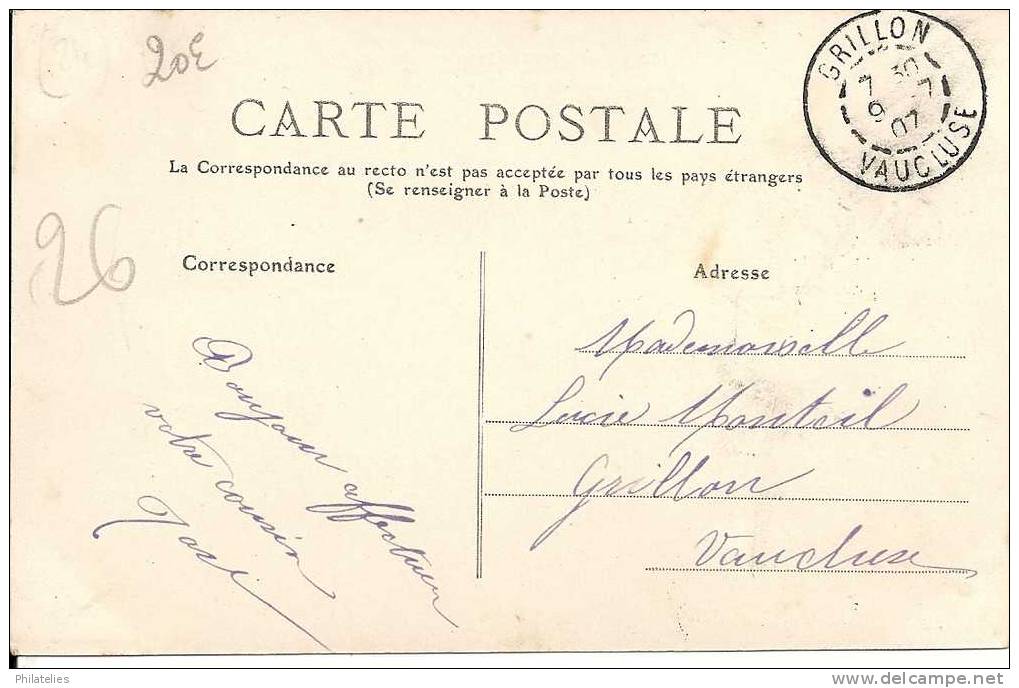 20E
CARTE POSTALE
La Correspondance au recto n'est pas acceptée par tous les pays étrangers
(Se renseigner à la Poste)
GRILLON
7 30
9 -7
07
VAUCLUSE
26
Correspondance
Bonjour affectueux
votre cousin
Adresse
Mademoiselle
Lucie Monteil
Grillon
Vaucluse
Philatelies
www.delcampe.net